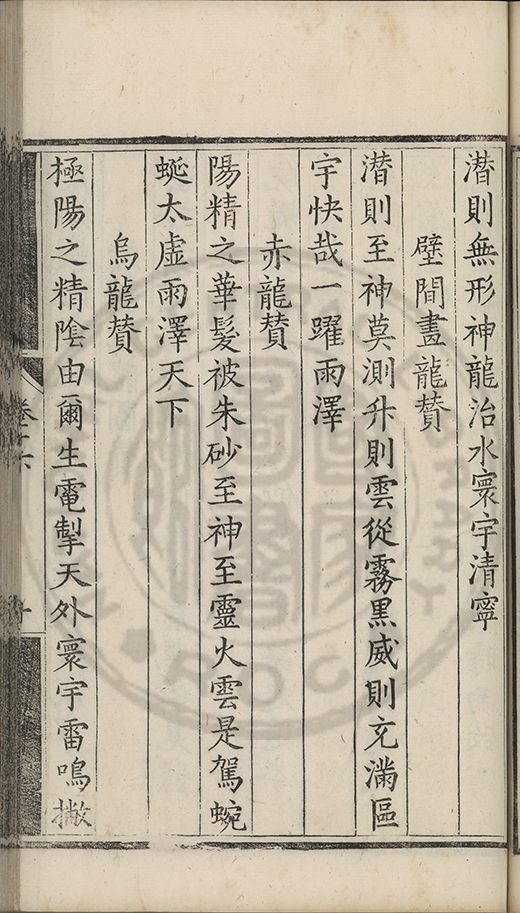 潛則無形神龍治水寰宇清寧
壁間畫龍贊
潛則至神莫測升則雲從霧黑威則充滿區
宇快哉一躍雨澤
赤龍贊
陽精之華髮被朱砂至神至靈火雲是駕蜿
蜒太虛雨澤天下
烏龍贊
極陽之精陰由爾生電掣天外寰宇雷鳴撇
卷十六